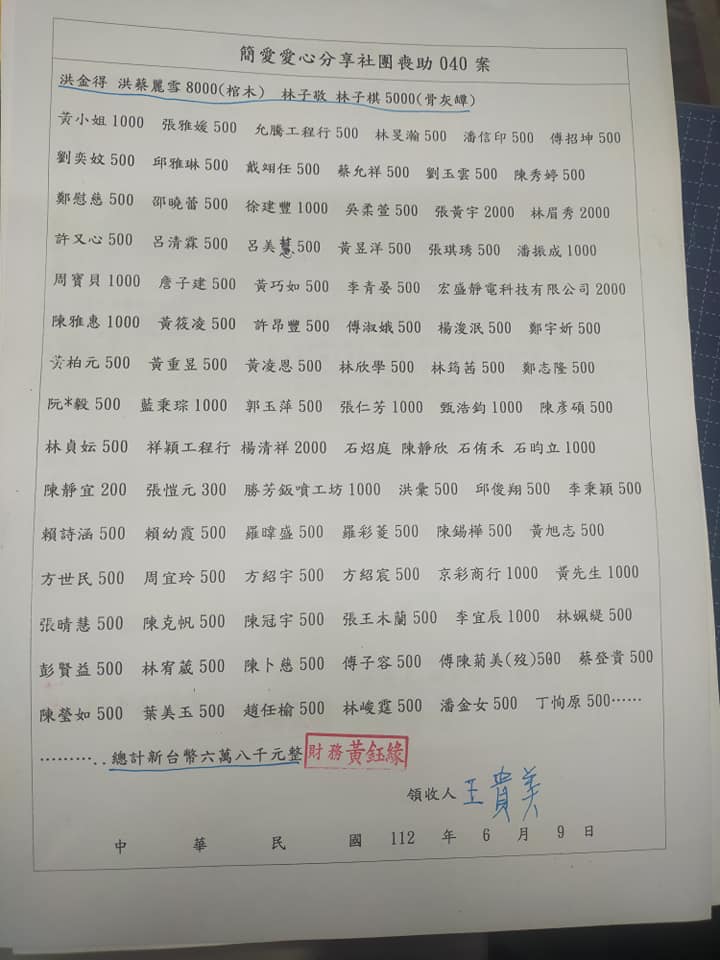 簡愛愛心分享社團喪助 040 案
洪金得 洪蔡麗雪 8000(棺木) 林子敬 林子棋 5000(骨灰罈)
黃小姐 1000 張雅媛 500 允騰工程行 500 林旻瀚 500 潘信印 500 傅招坤 500
劉奕妏 500 邱雅琳 500 戴翊任 500 蔡允祥 500 劉玉雲 500 陳秀婷 500
鄭慰慈 500 邵曉蕾 500 徐建豐 1000 吳柔萱 500 張黃宇 2000 林眉秀 2000
許又心 500 呂清霖 500 呂美慧 500 黃昱洋 500 張琪琇 500 潘振成 1000
周寶貝 1000 詹子建 500 黃巧如 500 李青晏 500 宏盛靜電科技有限公司 2000
陳雅惠 1000 黃筱凌 500 許昂豐 500 傅淑娥 500 楊浚泯 500 鄭宇妡 500
黃柏元 500 黃重昱 500 黃凌恩 500 林欣學 500 林筠茜 500 鄭志隆 500
阮*毅 500 藍秉琮 1000 郭玉萍 500 張仁芳 1000 甄浩鈞 1000 陳彥碩 500
林貞妘 500 祥穎工程行 楊清祥 2000 石炤庭 陳靜欣 石侑禾 石昀立 1000
陳靜宜 200 張愷元 300 勝芳鈑噴工坊 1000 洪彙 500 邱俊翔 500 李秉穎 500
賴詩涵 500 賴幼霞 500 羅暐盛 500 羅彩菱 500 陳錫樺 500 黃旭志 500
方世民 500 周宜玲 500 方紹宇 500 方紹宸 500 京彩商行 1000 黃先生 1000
張晴慧 500 陳克帆 500 陳冠宇 500 張王木蘭 500 李宜辰 1000 林姵緹 500
彭賢益 500 林宥葳 500 陳卜慈 500 傅子容 500 傅陳菊美(歿)500 蔡登貴 500
陳瑩如 500 葉美玉 500 趙任榆 500 林峻霆 500 潘金女 500 丁恂原 500……
………..總計新台幣六萬八千元整 財務 黃鈺緣
領收人 王貴美
中 華 民 國 112 年 6 月 9 日